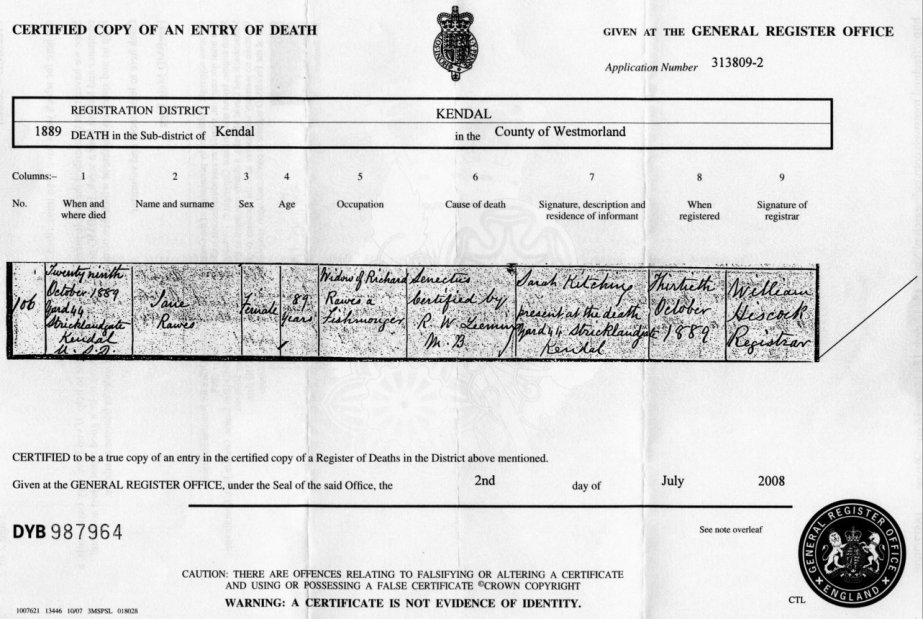 CERTIFIED COPY OF AN ENTRY OF DEATH
GIVEN AT THE GENERAL REGISTER OFFICE
Application Number 313809-2
REGISTRATION DISTRICT KENDAL
1889 DEATH in the Sub-district of Kendal in the County of Westmorland
Columns:– 1 2 3 4 5 6 7 8 9
No. When and where died Name and surname Sex Age Occupation Cause of death Signature, description and residence of informant When registered Signature of registrar
106
Twenty ninth
October 1889
Yard 44
Stricklandgate
Kendal
U.S.D.
Jane
Rawes
Female
89
years
Widow of Richard
Rawes a
Fishmonger
Senectus
Certified by
R. W. Leeming
M. B.
Sarah Kitching
present at the death
Yard 44 Stricklandgate
Kendal
Thirtieth
October
1889
William
Hiscock
Registrar
CERTIFIED to be a true copy of an entry in the certified copy of a Register of Deaths in the District above mentioned.
Given at the GENERAL REGISTER OFFICE, under the Seal of the said Office, the 2nd day of July 2008
DYB 987964
See note overleaf
GENERAL REGISTER OFFICE
ENGLAND
CAUTION: THERE ARE OFFENCES RELATING TO FALSIFYING OR ALTERING A CERTIFICATE
AND USING OR POSSESSING A FALSE CERTIFICATE ©CROWN COPYRIGHT
WARNING: A CERTIFICATE IS NOT EVIDENCE OF IDENTITY.
CTL
1007621 13446 10/07 3MSPSL 018028